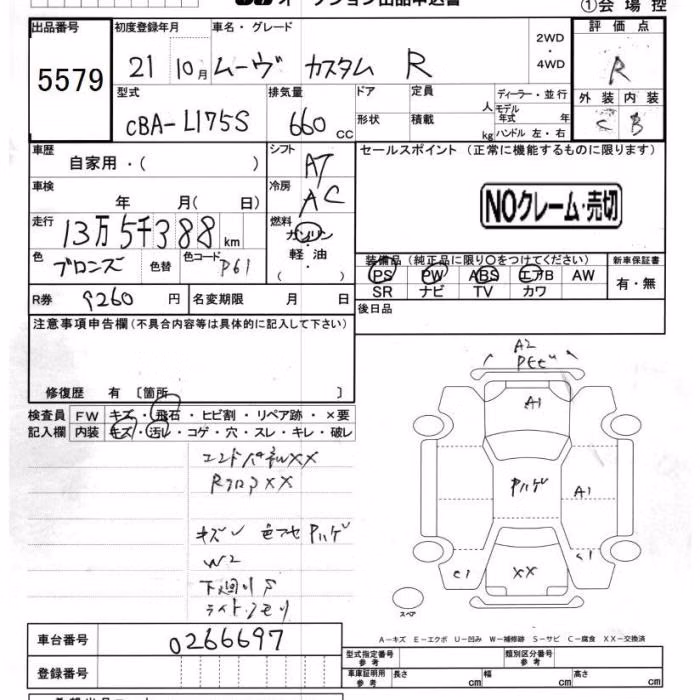 ①会場控
出品番号 初度登録年月 車名・グレード 評価点
5579 21 10月 ムーヴ カスタム R 2WD・4WD R
型式 排気量 ドア 定員 ディーラー・並行 外装 内装
CBA-L175S 660cc 形状 積載 人 kg モデル年式 年 ハンドル 左・右 C B
車歴 シフト セールスポイント(正常に機能するものに限ります)
自家用・( ) AT
車検 冷房
年 月( 日) AC NOクレーム・売切
走行 燃料
13万5千388km ガソリン・軽油 ( )
色 色替 色コード 装備品(純正品に限り○をつけてください) 新車保証書
ブロンズ P61 PS PW ABS エアB AW 有・無
SR ナビ TV カワ
R券 9260円 名変期限 月 日
後日品
注意事項申告欄(不具合内容等は具体的に記入して下さい)
修復歴 有 〔箇所 〕
検査員 FW キズ・飛石・ヒビ割・リペア跡・×要
記入欄 内装 キズ・汚レ・コゲ・穴・スレ・キレ・破レ
A2
A1
エンドパネルXX
RフロアXX
Pハゲ
A1
キズ 色フセ Pハゲ
W2
C1
C1
XX
下廻りS
ライトクモリ
スペア
A-キズ E-エクボ U-凹み W-補修跡 S-サビ C-腐食 XX-交換済
車台番号 0266697
型式指定番号 参考 類別区分番号 参考
登録番号 車庫証明用 参考 長さ cm 幅 cm 高さ cm